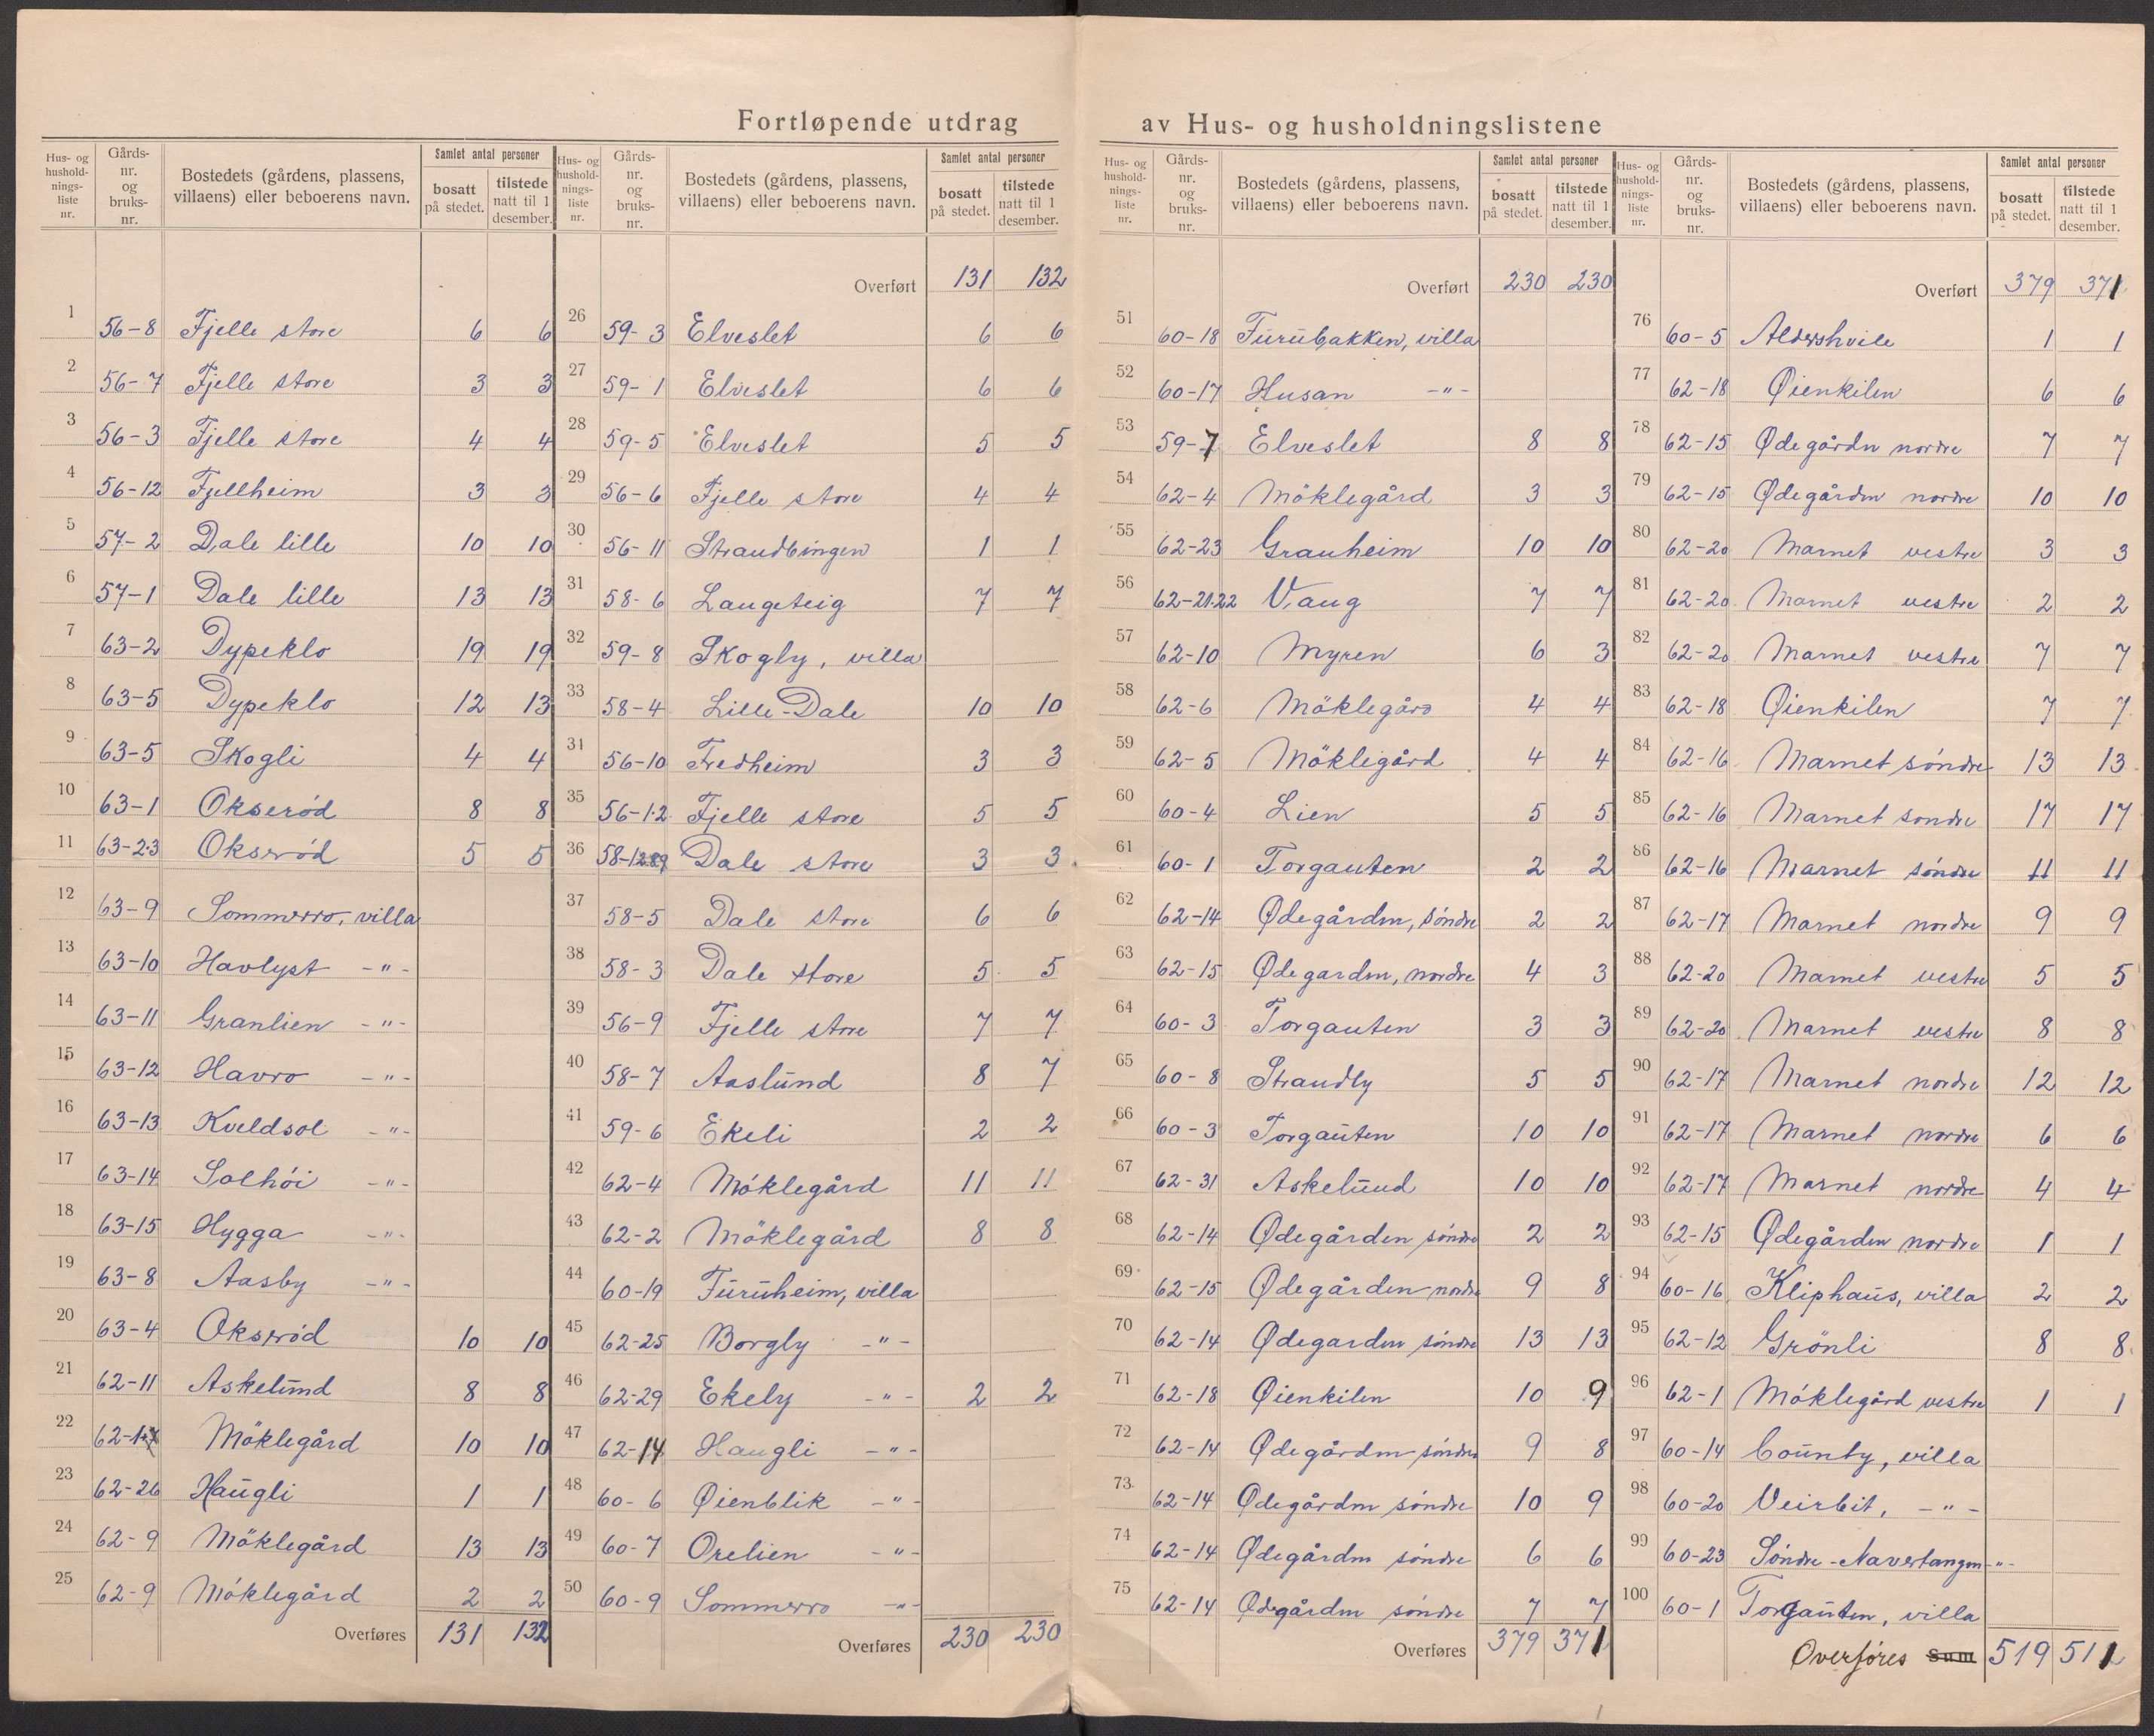 Fortløpende utdrag av Hus- og husholdningslistene
Hus- og hushold-nings-liste nr. Gårds-nr. og bruks-nr. Bostedets (gårdens, plassens, villaens) eller beboerens navn. Samlet antal personer bosatt på stedet. tilstede natt til 1 desember.
1 56-8 Fjelle store 6 6
2 56-7 Fjelle store 3 3
3 56-3 Fjelle store 4 4
4 56-12 Fjellheim 3 3
5 57-2 Dale lille 10 10
6 57-1 Dale lille 13 13
7 63-2 Dypeklo 19 19
8 63-5 Dypeklo 12 13
9 63-5 Skogli 4 4
10 63-1 Okserød 8 8
11 63-2.3 Okserød 5 5
12 63-9 Sommerro, villa
13 63-10 Havlyst -"-
14 63-11 Granlien -"-
15 63-12 Havro -"-
16 63-13 Kveldsol -"-
17 63-14 Solhöi -"-
18 63-15 Hygga -"-
19 63-8 Aasby -"-
20 63-4 Okserød 10 10
21 62-11 Askelund 8 8
22 Möklegård 10 10
23 62-26 Haugli 1 1
24 62-9 Möklegård 13 13
25 62-9 Möklegård 2 2
Overføres 131 132
Hus- og hushold-nings-liste nr. Gårds-nr. og bruks-nr. Bostedets (gårdens, plassens, villaens) eller beboerens navn. Samlet antal personer bosatt på stedet. tilstede natt til 1 desember.
Overført 131 132
26 59-3 Elveslet 6 6
27 59-1 Elveslet 6 6
28 59-5 Elveslet 5 5
29 56-6 Fjelle store 4 4
30 56-11 Strandbingen 1 1
31 58-6 Langeteig 7 7
32 59-8 Skogly, villa
33 58-4 Lille-Dale 10 10
31 56-10 Fredheim 3 3
35 56-1.2 Fjelle store 5 5
36 Dale store 3 3
37 58-5 Dale store 6 6
38 58-3 Dale store 5 5
39 56-9 Fjelle store 7 7
40 58-7 Aaslund 8 7
41 59-6 Ekeli 2 2
42 62-4 Möklegård 11 11
43 62-2 Möklegård 8 8
44 60-19 Furuheim, villa
45 62-25 Borgly -"-
46 62-29 Ekely -"- 2 2
47 62-14 Haugli -"-
48 60-6 Øienblik -"-
49 60-7 Orelien -"-
50 60-9 Sommerro -"-
Overføres 230 230
Hus- og hushold-nings-liste nr. Gårds-nr. og bruks-nr. Bostedets (gårdens, plassens, villaens) eller beboerens navn. Samlet antal personer bosatt på stedet. tilstede natt til 1 desember.
Overført 230 230
51 60-18 Furubakken, villa
52 60-17 Husan -"-
53 59-7 Elveslet 8 8
54 62-4 Möklegård 3 3
55 62-23 Granheim 10 10
56 62-21.22 Vang 7 7
57 62-10 Myren 6 3
58 62-6 Möklegård 4 4
59 62-5 Möklegård 4 4
60 60-4 Lien 5 5
61 60-1 Torgauten 2 2
62 62-14 Ødegården, söndre 2 2
63 62-15 Ødegarden, nordre 4 3
64 60-3 Torgauten 3 3
65 60-8 Strandly 5 5
66 60-3 Torgauten 10 10
67 62-31 Askelund 10 10
68 62-14 Ødegården söndre 2 2
69 62-15 Ødegården nordre 9 8
70 62-14 Ødegarden söndre 13 13
71 62-18 Øienkilen 10 9
72 62-14 Ødegården söndre 9 8
73 62-14 Ødegården söndre 10 9
74 62-14 Ødegården söndre 6 6
75 62-14 Ødegården söndre 7 7
Overføres 379 371
Hus- og hushold-nings-liste nr. Gårds-nr. og bruks-nr. Bostedets (gårdens, plassens, villaens) eller beboerens navn. Samlet antal personer bosatt på stedet. tilstede natt til 1 desember.
Overført 379 371
76 60-5 Aldershvile 1 1
77 62-18 Øienkilen 6 6
78 62-15 Ødegården nordre 7 7
79 62-15 Ødegården nordre 10 10
80 62-20 Marnet vestre 3 3
81 62-20 Marnet vestre 2 2
82 62-20 Marnet vestre 7 7
83 62-18 Øienkilen 7 7
84 62-16 Marnet söndre 13 13
85 62-16 Marnet sondre 17 17
86 62-16 Marnet söndre 11 11
87 62-17 Marnet nordre 9 9
88 62-20 Marnet vestre 5 5
89 62-20 Marnet vestre 8 8
90 62-17 Marnet nordre 12 12
91 62-17 Marnet nordre 6 6
92 62-17 Marnet nordre 4 4
93 62-15 Ødegården nordre 1 1
94 60-16 Kliphaus, villa 2 2
95 62-12 Grönli 8 8
96 62-1 Möklegård vestre 1 1
97 60-14 County, villa
98 60-20 Veirbit, -"-
99 60-23 Söndre-Navertangen -"-
100 60-1 Torgauten, villa
Overföres Sum 519 511